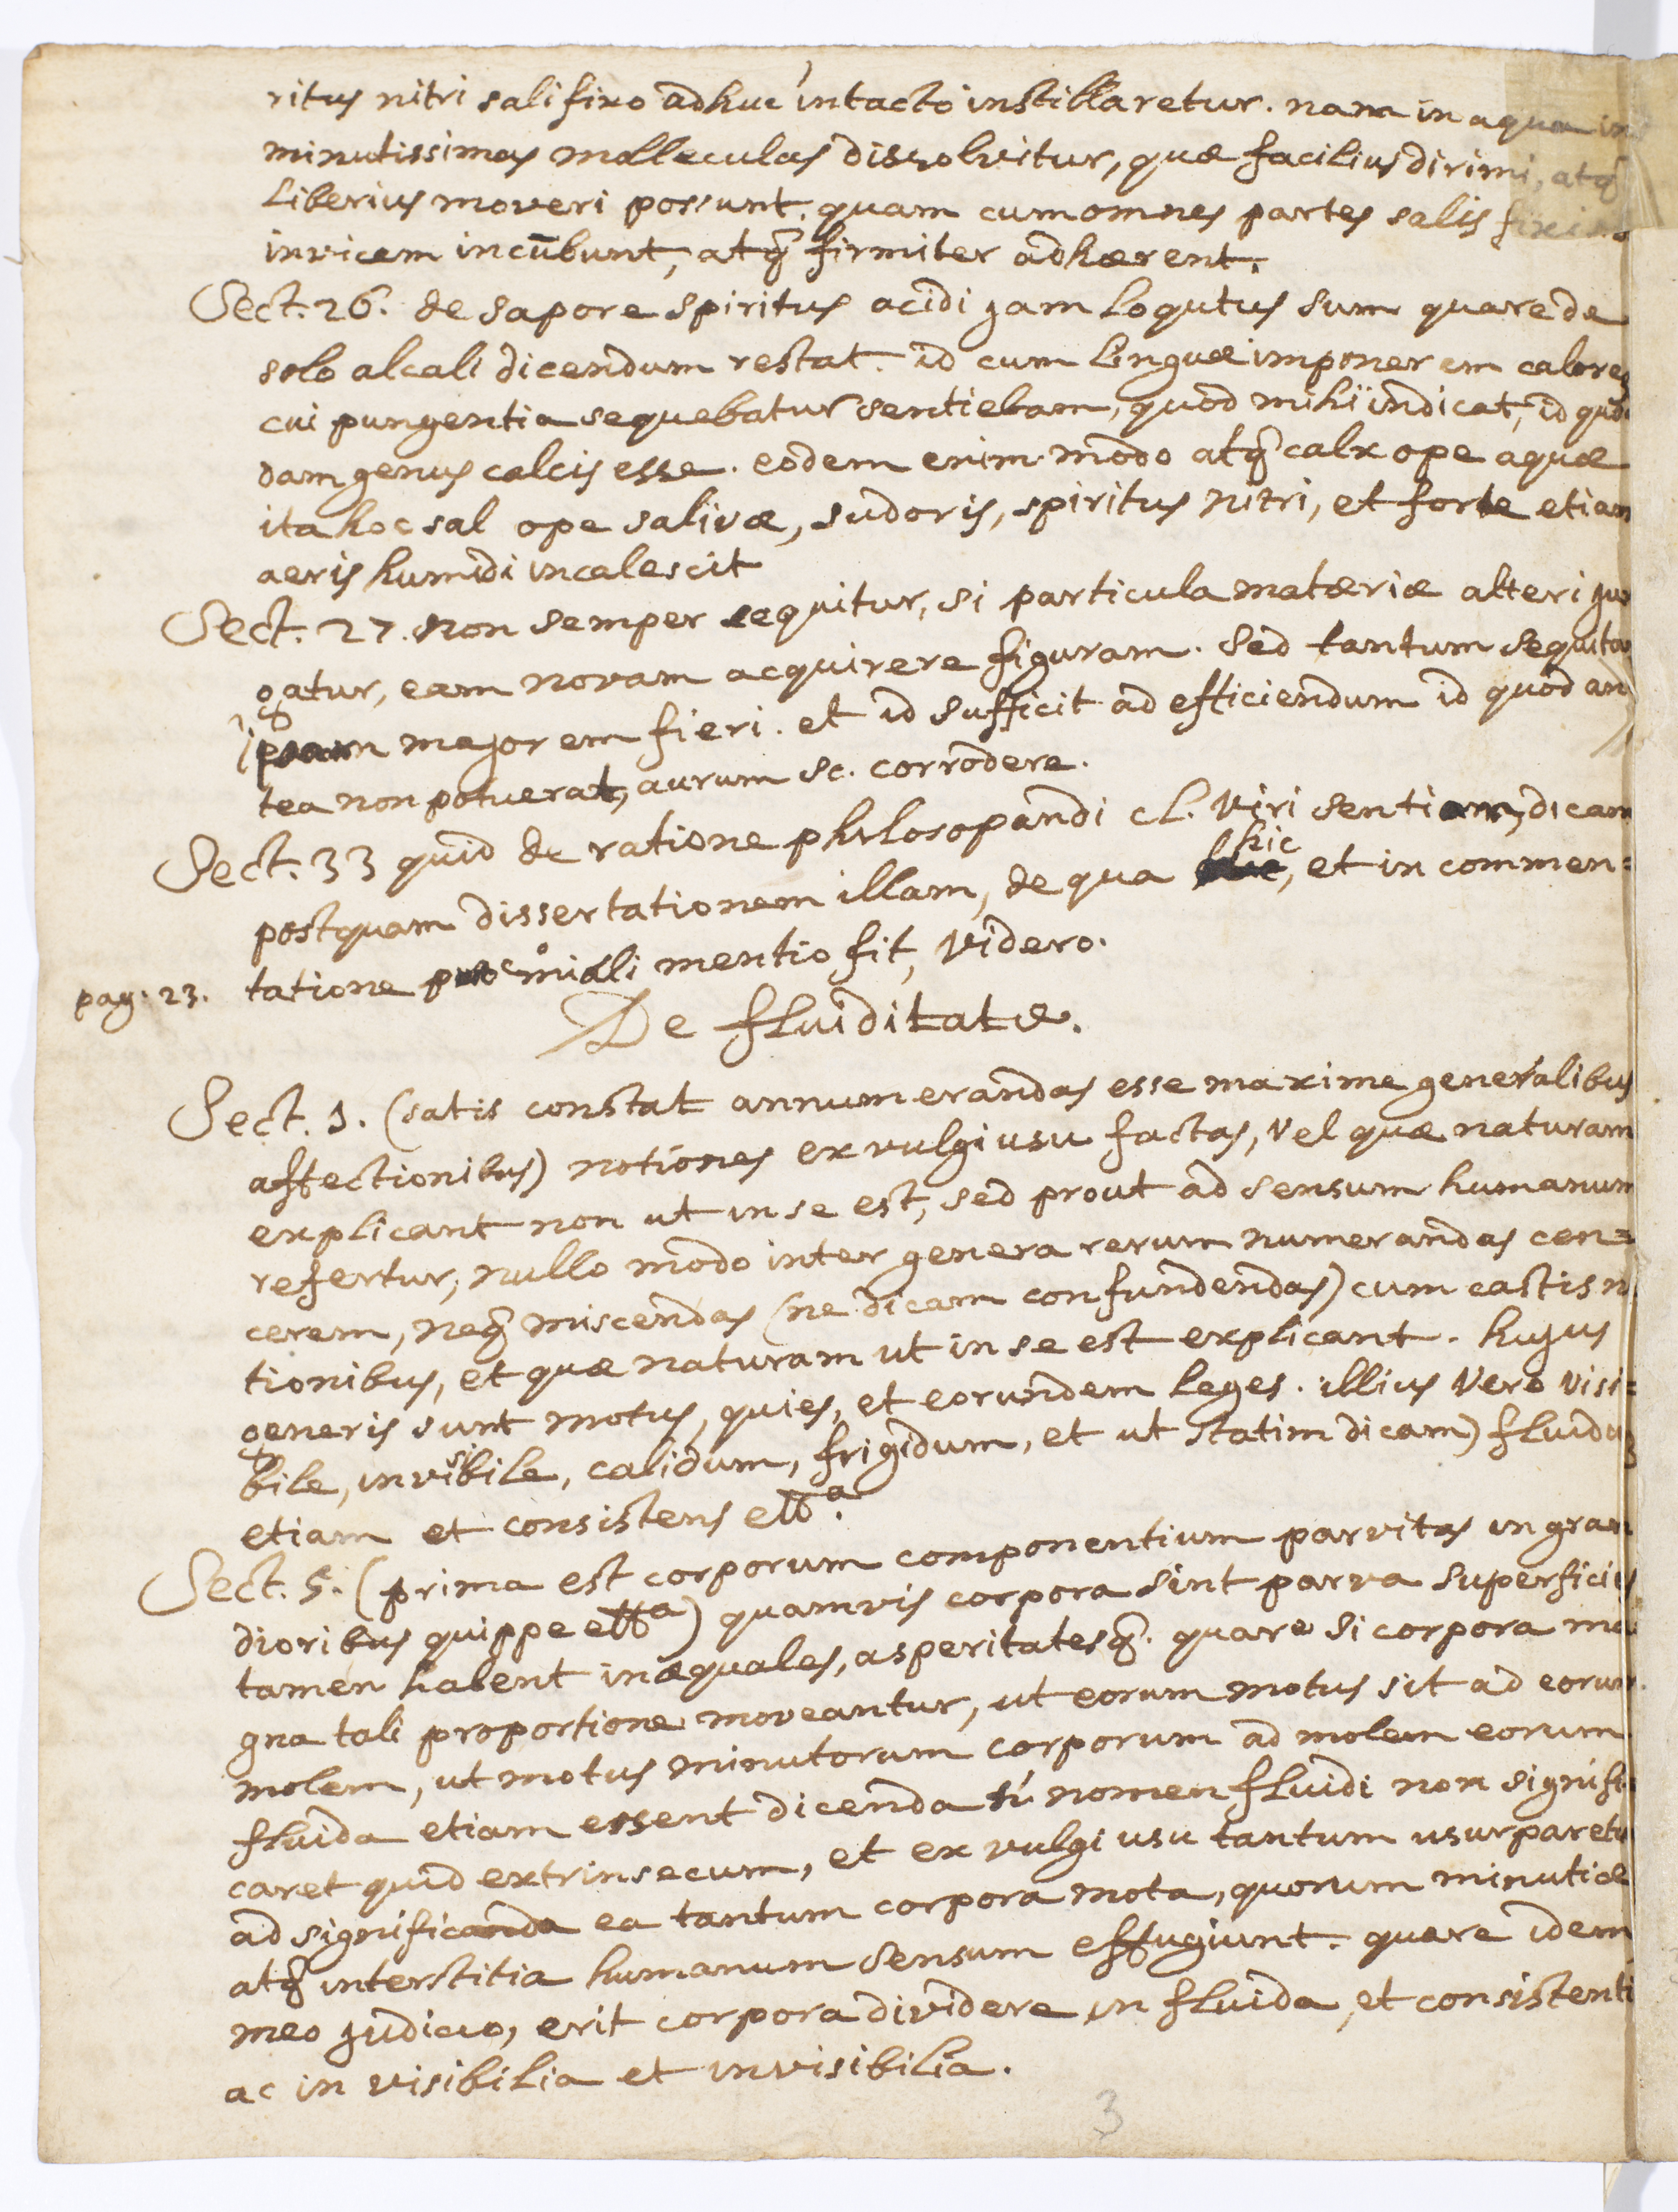 ritus nitri sali fixo adhuc intacto instillaretur. nam in aqua in
minutissimas molleculas dissolvitur, quæ facilius dirimi, atq̃
liberius moveri possunt. quam cum omnes partes salis fixi
invicem incūbunt, atq̃ firmiter adhærent.
Sect. 26. de sapore spiritus acidi jam loqutus sum quare de
solo alcali dicendum restat. id cum linguæ imponerem calorem
cui pungentia sequebatur sentiebam, quod mihi indicat, id quod
dam genus calcis esse. eodem enim modo atq̃ calx ope aquæ
ita hoc sal ope salivæ, sudoris, spiritus nitri, et forte etiam
aeris humidi incalescit
Sect. 27. Non semper sequitur, si particula matæriæ alteri jun
gatur, eam novam acquirere figuram. sed tantum sequitur
ipsam majorem fieri. et id sufficit ad efficiendum id quod an
tea non potuerat, aurum sc. corrodere.
Sect. 33 quid de ratione philosopandi cl. Viri sentiam, dicam
postquam dissertationem illam, de qua hic, et in commen=
pag. 23. tatione proœmiali mentio fit, videro.
De fluiditate.
Sect. 1. (satis constat annumerandas esse maxime generalibus
affectionibus) notiones ex vulgi usu factas, vel quæ naturam
explicant non ut in se est, sed prout ad sensum humanum
refertur, nullo modo inter genera rerum numerandas cen=
cerem, neq̃ miscendas (ne dicam confundendas) cum castis no
tionibus, et quæ naturam ut in se est explicant. hujus
generis sunt motus, quies, et eorundem leges. illius vero visi=
bile, invisibile, calidum, frigidum, et ut statim dicam) fluidum
etiam et consistens etta.
Sect. 5. (prima est corporum componentium parvitas in gran
dioribus quippe etta) quamvis corpora sint parva superficies
tamen habent inæquales, asperitatesq̃. quare si corpora ma
gna tali proportione moveantur, ut eorum motus sit ad eorum
molem, ut motus minutorum corporum ad molem eorum
fluida etiam essent dicenda si nomen fluidi non signifi
caret quid extrinsecum, et ex vulgi usu tantum usurparetur
ad significanda ea tantum corpora mota, quorum minutiæ
atq̃ interstitia humanum sensum effugiunt. quare idem
meo judicio, erit corpora dividere in fluida, et consistenti
ac in visibilia et invisibilia.
3